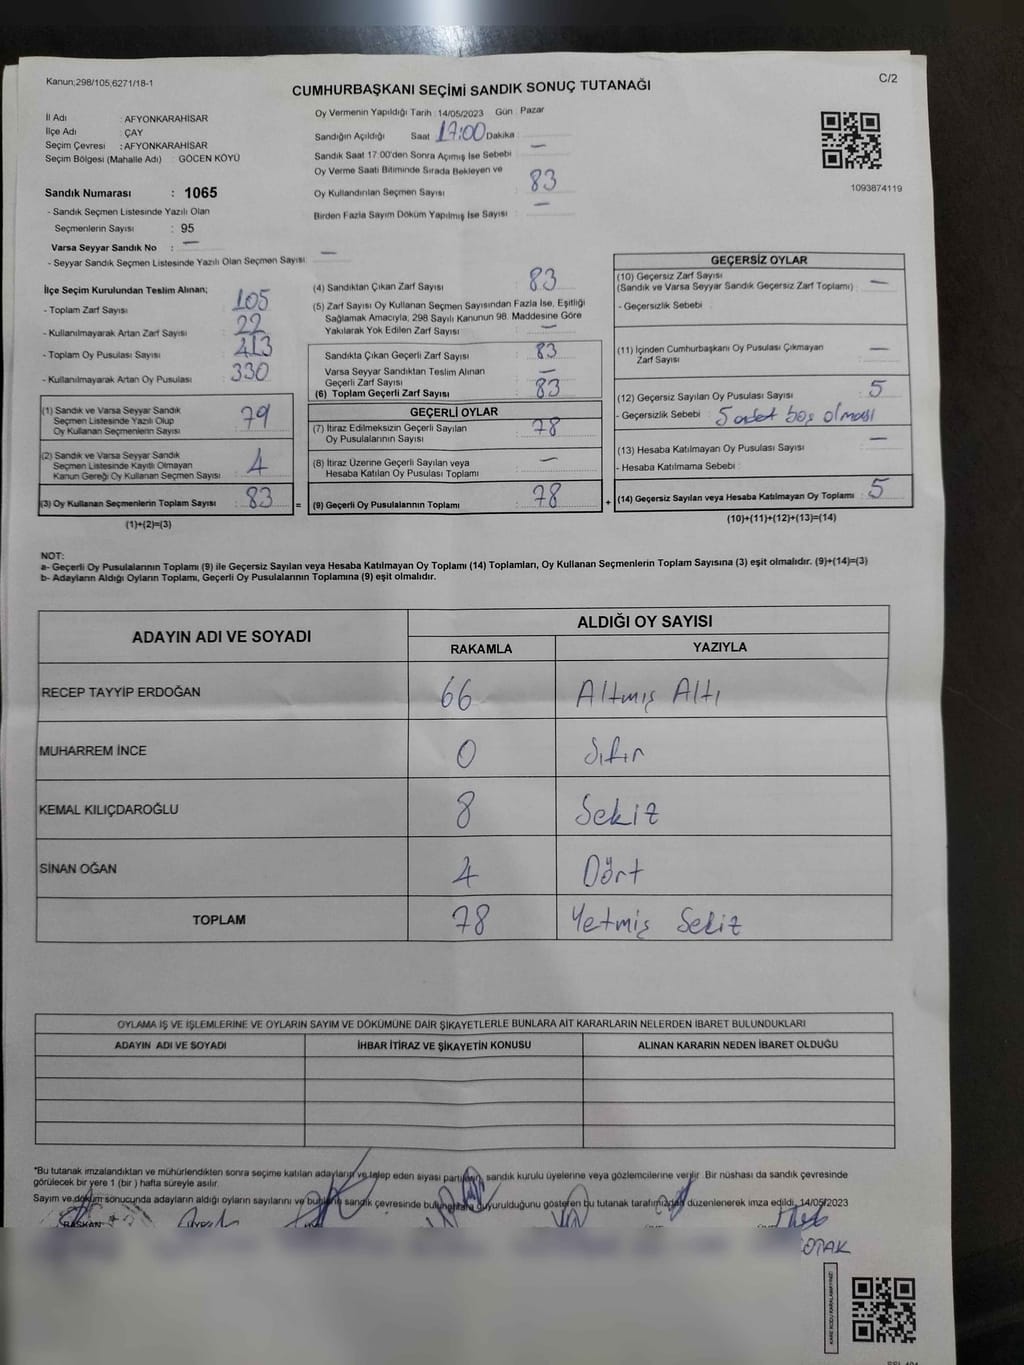 Kanun;298/105,6271/18-1
C/2
CUMHURBAŞKANI SEÇİMİ SANDIK SONUÇ TUTANAĞI
İl Adı : AFYONKARAHİSAR
İlçe Adı : ÇAY
Seçim Çevresi : AFYONKARAHİSAR
Seçim Bölgesi (Mahalle Adı) : GÖCEN KÖYÜ
Sandık Numarası : 1065
- Sandık Seçmen Listesinde Yazılı Olan
Seçmenlerin Sayısı : 95
Varsa Seyyar Sandık No : —
- Seyyar Sandık Seçmen Listesinde Yazılı Olan Seçmen Sayısı : —
Oy Vermenin Yapıldığı Tarih : 14/05/2023 Gün : Pazar
Sandığın Açıldığı Saat 17:00 Dakika :
Sandık Saat 17:00'den Sonra Açımış İse Sebebi : —
Oy Verme Saati Bitiminde Sırada Bekleyen ve
Oy Kullandırılan Seçmen Sayısı : 83
Birden Fazla Sayım Döküm Yapılmış İse Sayısı : —
1093874119
İlçe Seçim Kurulundan Teslim Alınan;
- Toplam Zarf Sayısı : 105
- Kullanılmayarak Artan Zarf Sayısı : 22
- Toplam Oy Pusulası Sayısı : 413
- Kullanılmayarak Artan Oy Pusulası : 330
(1) Sandık ve Varsa Seyyar Sandık
Seçmen Listesinde Yazılı Olup
Oy Kullanan Seçmenlerin Sayısı : 79
(2) Sandık ve Varsa Seyyar Sandık
Seçmen Listesinde Kayıtlı Olmayan
Kanun Gereği Oy Kullanan Seçmen Sayısı : 4
(3) Oy Kullanan Seçmenlerin Toplam Sayısı : 83
(1)+(2)=(3)
=
(4) Sandıktan Çıkan Zarf Sayısı : 83
(5) Zarf Sayısı Oy Kullanan Seçmen Sayısından Fazla İse, Eşitliği
Sağlamak Amacıyla, 298 Sayılı Kanunun 98. Maddesine Göre
Yakılarak Yok Edilen Zarf Sayısı : —
Sandıkta Çıkan Geçerli Zarf Sayısı : 83
Varsa Seyyar Sandıktan Teslim Alınan
Geçerli Zarf Sayısı : —
(6) Toplam Geçerli Zarf Sayısı : 83
GEÇERLİ OYLAR
(7) İtiraz Edilmeksizin Geçerli Sayılan
Oy Pusulalarının Sayısı : 78
(8) İtiraz Üzerine Geçerli Sayılan veya
Hesaba Katılan Oy Pusulası Toplamı : —
(9) Geçerli Oy Pusulalarının Toplamı : 78
+
GEÇERSİZ OYLAR
(10) Geçersiz Zarf Sayısı
(Sandık ve Varsa Seyyar Sandık Geçersiz Zarf Toplamı) : —
- Geçersizlik Sebebi :
(11) İçinden Cumhurbaşkanı Oy Pusulası Çıkmayan
Zarf Sayısı : —
(12) Geçersiz Sayılan Oy Pusulası Sayısı : 5
- Geçersizlik Sebebi : 5 adet boş olması
(13) Hesaba Katılmayan Oy Pusulası Sayısı : —
- Hesaba Katılmama Sebebi :
(14) Geçersiz Sayılan veya Hesaba Katılmayan Oy Toplamı : 5
(10)+(11)+(12)+(13)=(14)
NOT:
a- Geçerli Oy Pusulalarının Toplamı (9) ile Geçersiz Sayılan veya Hesaba Katılmayan Oy Toplamı (14) Toplamları, Oy Kullanan Seçmenlerin Toplam Sayısına (3) eşit olmalıdır. (9)+(14)=(3)
b- Adayların Aldığı Oyların Toplamı, Geçerli Oy Pusulalarının Toplamına (9) eşit olmalıdır.
ADAYIN ADI VE SOYADI
ALDIĞI OY SAYISI
RAKAMLA YAZIYLA
RECEP TAYYİP ERDOĞAN 66 Altmış Altı
MUHARREM İNCE 0 Sıfır
KEMAL KILIÇDAROĞLU 8 Sekiz
SİNAN OĞAN 4 Dört
TOPLAM 78 Yetmiş Sekiz
OYLAMA İŞ VE İŞLEMLERİNE VE OYLARIN SAYIM VE DÖKÜMÜNE DAİR ŞİKAYETLERLE BUNLARA AİT KARARLARIN NELERDEN İBARET BULUNDUKLARI
ADAYIN ADI VE SOYADI İHBAR İTİRAZ VE ŞİKAYETİN KONUSU ALINAN KARARIN NEDEN İBARET OLDUĞU
*Bu tutanak imzalandıktan ve mühürlendikten sonra seçime katılan adayların ve talep eden siyasi partilerin, sandık kurulu üyelerine veya gözlemcilerine verilir. Bir nüshası da sandık çevresinde
görülecek bir yere 1 (bir ) hafta süreyle asılır.
Sayım ve döküm sonucunda adayların aldığı oyların sayılarını ve bunların sandık çevresinde bulunanlara duyurulduğunu gösteren bu tutanak tarafımızdan düzenlenerek imza edildi. 14/05/2023
BAŞKAN
KARE KODU KARALAMAYINIZ!